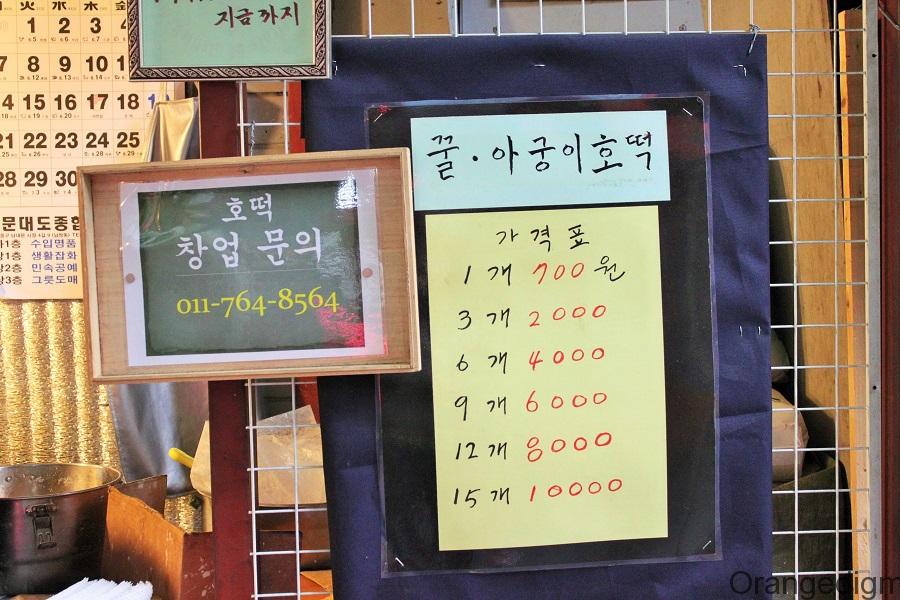 지금까지
1 2 3
7 8 9 10 11
14 15 16 17 18
21 22 23 24 25
28 29 30
문대도종합
1층 수입명품
1층 생활잡화
2층 민속공예
3층 그릇도매
호떡
창업 문의
011-764-8564
꿀·아궁이호떡
가격표
1개 700원
3개 2000
6개 4000
9개 6000
12개 8000
15개 10000
Orangedigm